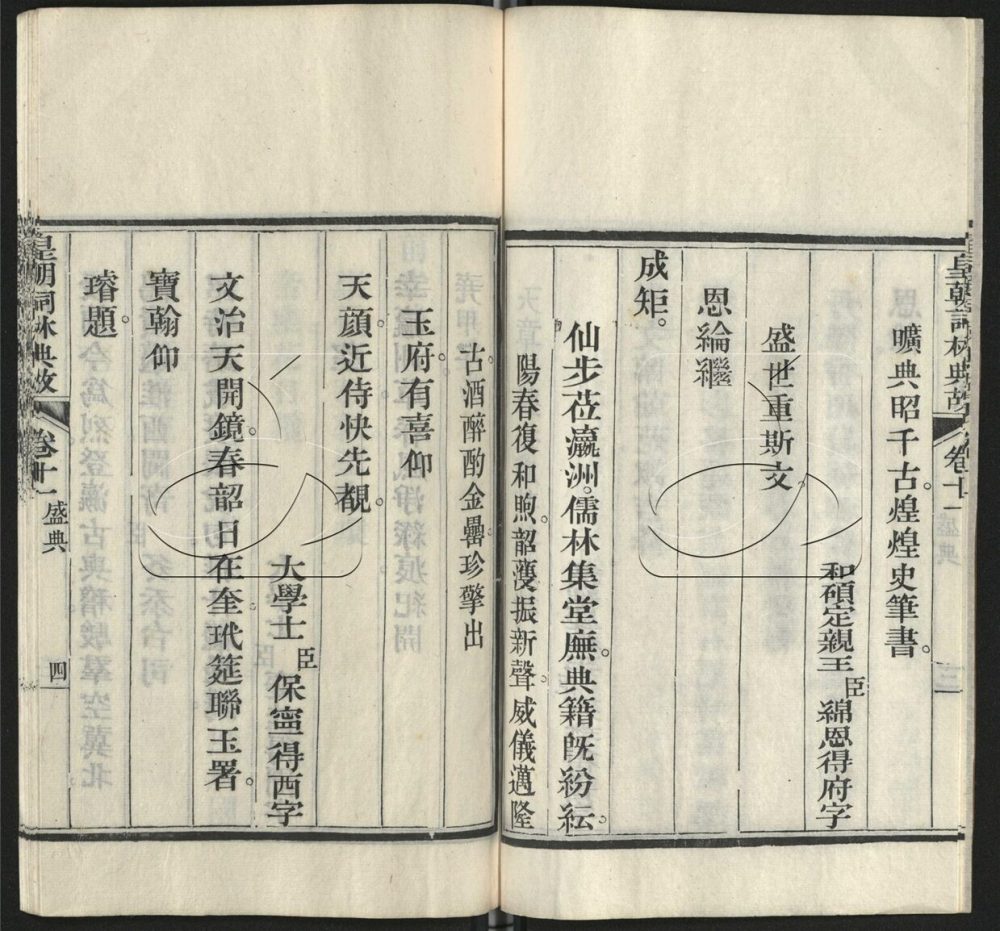 皇朝詞林典故 卷十一 盛典 三
曠典昭千古。煌煌史筆書。
和碩定親王臣綿恩得府字
盛世重斯文。
恩綸繼
成矩。
仙步莅瀛洲。儒林集堂廡。典籍旣紛紜。
陽春復和煦。韶濩振新聲。威儀邁隆
古。酒醉酌金罍。珍擎出
玉府。有喜仰
天顏。近侍快先覩。
大學士臣保寧得西字
文治天開鏡。春韶日在奎。玳筵聯玉署。
寶翰仰
璿題。
皇朝詞林典故 卷十一 盛典 四